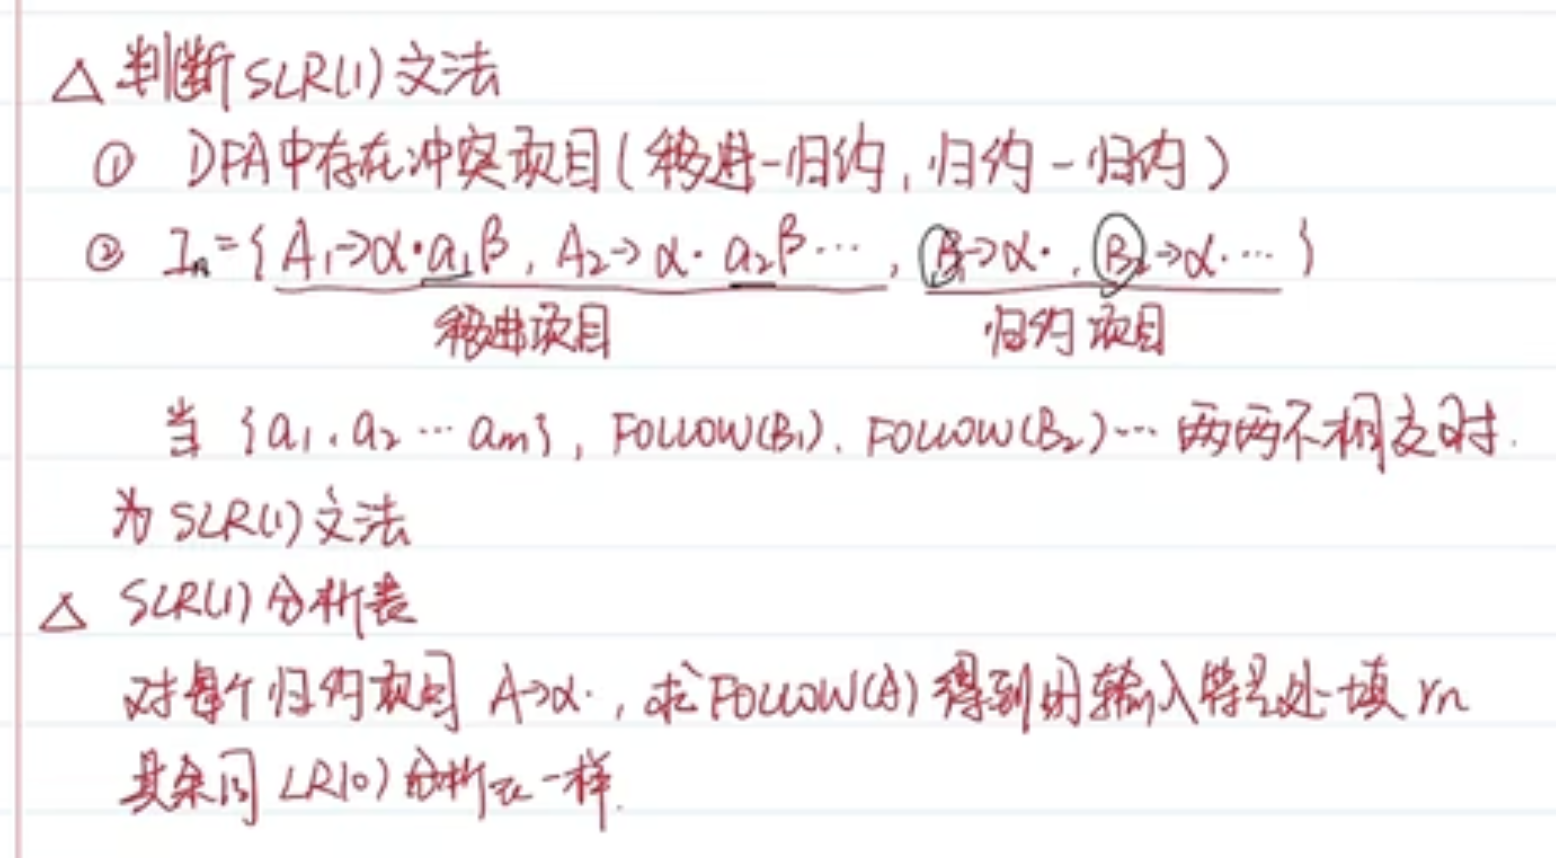 △ 判断SLR(1)文法
① DFA中存在冲突项目(移进-归约,归约-归约)
② In={A₁→α·a₁β, A₂→α·a₂β···, B₁→α·, B₂→α····}
移进项目 归约项目
当 {a₁,a₂···am}, FOLLOW(B₁), FOLLOW(B₂)···两两不相交时.
为SLR(1)文法
△ SLR(1)分析表
对每个归约项目 A→α·, 求FOLLOW(A)得到的输入符号处填rn
其余同LR(0)分析表一样.